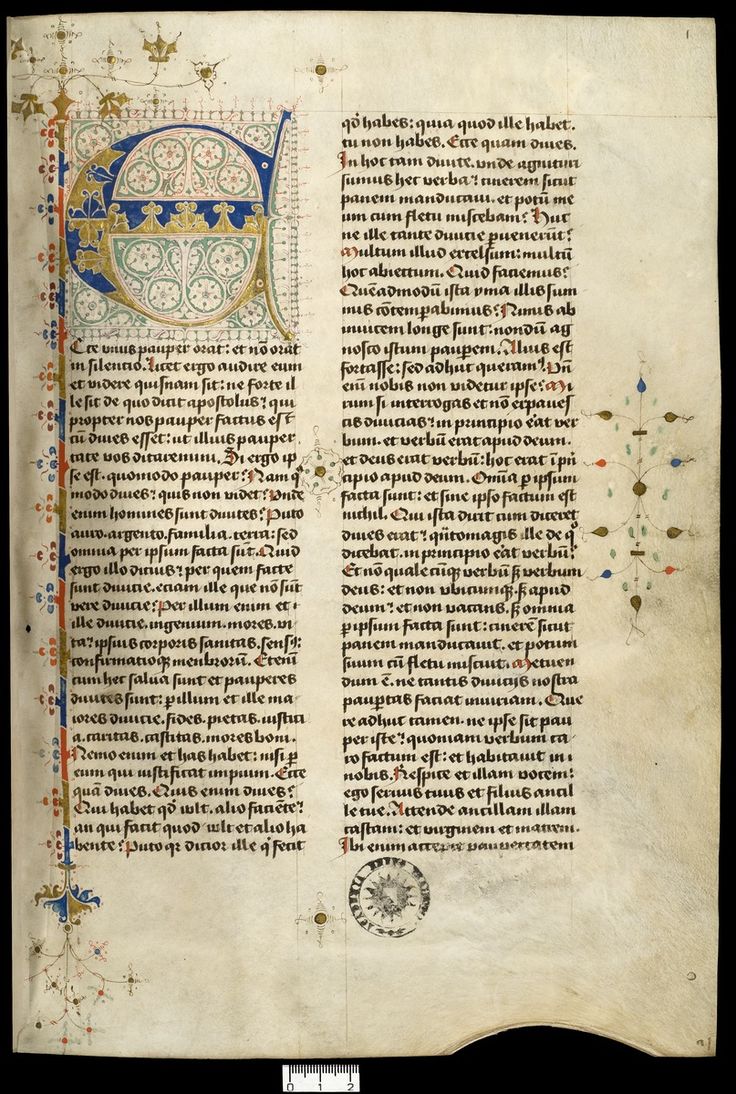 1
Ecce vnus pauper orat: et nō orat
in silencio. Licet ergo audire eum
et videre quisnam sit: ne forte il
le sit de quo dicit apostolus? qui
propter nos pauper factus est
cū diues esset: ut illius pauper
tate vos ditaremini. Si ergo ip
se est. quomodo pauper? Nam qͦ
modo diues? quis non videt? Vnde
enim homines sunt diuites? Puto
auro. argento. familia. terra: sed
omnia per ipsum facta sūt. Quid
ergo illo dicius? per quem facte
sunt diuicie. eciam ille que nō sūt
vere diuicie? Per illum enim et i
ille diuicie. ingenium. mores. vi
ta? ipsius corporis sanitas. sensꝰ:
confirmatioqꝫ menbrorū. Etenī
cum hec salua sunt et pauperes
diuites sunt: p illum et ille ma
iores diuicie. fides. pietas. iustici
a. caritas. castitas. mores boni.
Nemo enim et has habet: nisi p
eum qui iustificat impium. Ecce
quā diues. Quis enim diues?
Qui habet qd wlt. alio faciēte?
an qui facit quod wlt et alio ha
bente? Puto qr dicior ille qͥ fecit
qd habes: quia quod ille habet.
tu non habes. Ecce quam diues.
In hoc tam diuite. vnde agnituri
sumus hec verba? cinerem sicut
panem manducaui. et potū me
um cum fletu miscebam? Huc
ne ille tante diuicie puenerūt?
Multum illud excelsum: multū
hoc abiectum. Quid faciemus?
Quēadmodū ista yma illis sum
mis cōtemperabimus? Nimis ab
inuicem longe sunt: nondū ag
nosco istum paupem. Alius est
fortasse: sed adhuc queram?
eīn nobis non videtur ipse? Mi
rum si interrogas et nō expaues
cis diuicias? in principio eat ver
bum. et verbū erat apud deum.
et deus erat verbū: hoc erat ī prī
cipio apud deum. Omīa p ipsum
facta sunt: et sine ipso factum est
nichil. Qui ista dicit cum diceret
diues erat? qͣntomagis ille de qͦ
dicebat. in principio eat verbū?
Et nō quale cūqꝫ verbū sꝫ verbum
deus: et non vbicumqꝫ. sꝫ apud
deum? et non vacans. sꝫ omnia
p ipsum facta sunt: cinerē sicut
panem manducauit. et potum
suum cū fletu miscuit. Metuen
dum ē. ne tantis diuiciis nostra
paupertas faciat iniuriam. Que
re adhuc tamen. ne ipse sit pau
per iste? quoniam verbum ca
ro factum est: et habitauit in i
nobis. Respice et illam vocem:
ego seruus tuus et filius ancil
le tue. Attende ancillam illam
castam: et virginem et matrem.
Ibi enim accepit paupertatem
0 1 2